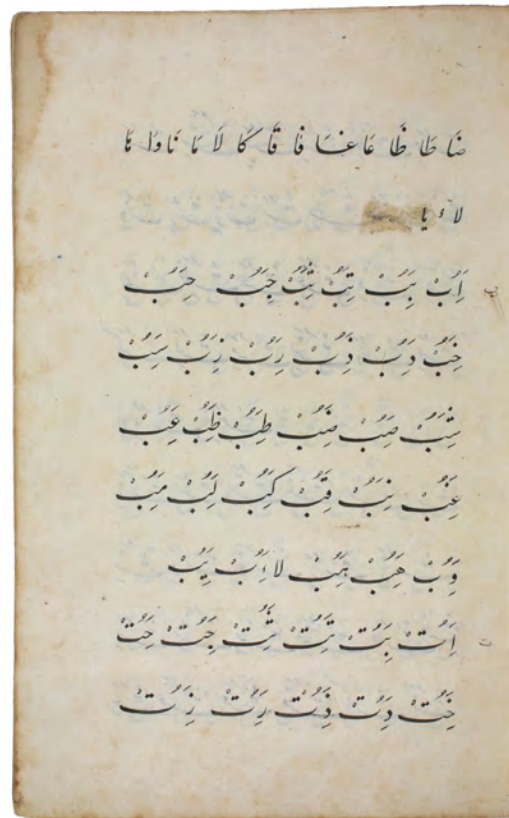 ضَا طَا ظَا عَا غَا فَا قَا كَا لَا مَا نَا وَا هَا
لا ء يا
اَُِبْ بَُِبْ تَُِبْ ثَُِبْ جَُِبْ حَُِبْ
خَُِبْ دَُِبْ ذَُِبْ رَُِبْ زَُِبْ سَُِبْ
شَُِبْ صَُِبْ ضَُِبْ طَُِبْ ظَُِبْ عَُِبْ
غَُِبْ فَُِبْ قَُِبْ كَُِبْ لَُِبْ مَُِبْ
وَُِبْ هَُِبْ هَُِبْ لا اَُِبْ يَُِبْ
اَُِتْ بَُِتْ تَُِتْ ثَُِتْ جَُِتْ حَُِتْ
خَُِتْ دَُِتْ ذَُِتْ رَُِتْ زَُِتْ